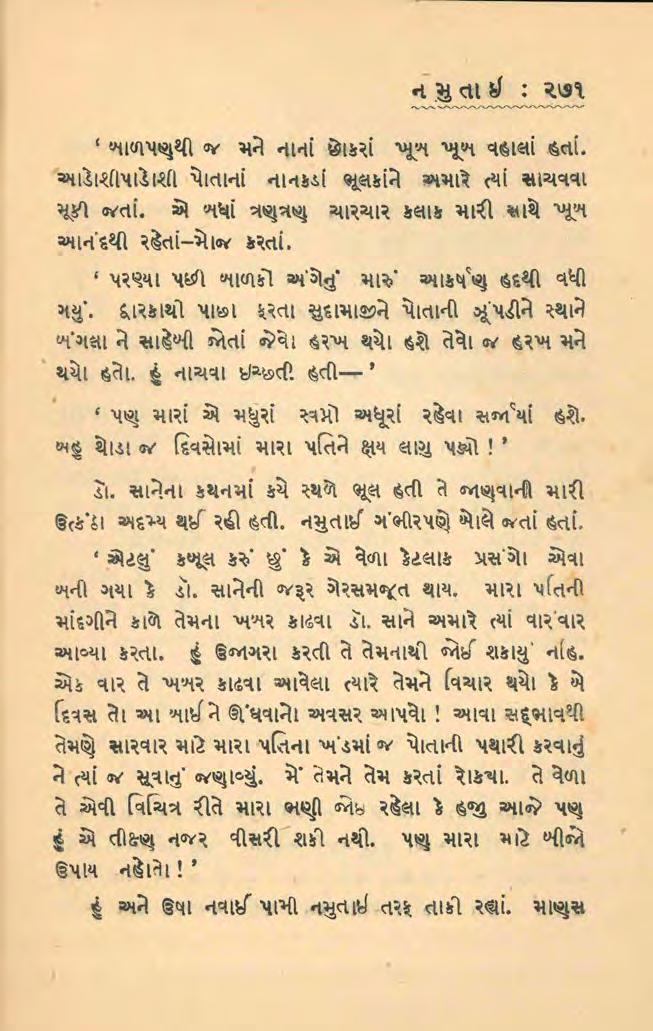 નમુતાઈ : ૨૭૧
‘ બાળપણથી જ મને નાનાં છોકરાં ખૂબ ખૂબ વહાલાં હતાં.
આડોશીપાડોશી પોતાનાં નાનકડાં ભૂલકાંને અમારે ત્યાં સાચવવા
મૂકી જતાં. એ બધાં ત્રણત્રણ ચારચાર કલાક મારી સાથે ખૂબ
આનંદથી રહેતાં–મોજ કરતાં.
‘ પરણ્યા પછી બાળકો અંગેનું મારું આકર્ષણ હદથી વધી
ગયું. દ્વારકાથી પાછા ફરતા સુદામાજીને પોતાની ઝૂંપડીને સ્થાને
બંગલા ને સાહેબી જોતાં જેવો હરખ થયો હશે તેવો જ હરખ મને
થયો હતો. હું નાચવા ઇચ્છતી હતી— ’
‘ પણ મારાં એ મધુરાં સ્વપ્નો અધૂરાં રહેવા સર્જાયાં હશે.
બહુ થોડા જ દિવસોમાં મારા પતિને ક્ષય લાગુ પડ્યો ! ’
ડો. સાનેના કથનમાં કયે સ્થળે ભૂલ હતી તે જાણવાની મારી
ઉત્કંઠા અદમ્ય થઈ રહી હતી. નમુતાઈ ગંભીરપણે બોલે જતાં હતાં.
‘ એટલું કબૂલ કરું છું કે એ વેળા કેટલાક પ્રસંગો એવા
બની ગયા કે ડૉ. સાનેની જરૂર ગેરસમજૂત થાય. મારા પતિની
માંદગીને કાળે તેમના ખબર કાઢવા ડૉ. સાને અમારે ત્યાં વારંવાર
આવ્યા કરતા. હું ઉજાગરા કરતી તે તેમનાથી જોઈ શકાયું નહિ.
એક વાર તે ખબર કાઢવા આવેલા ત્યારે તેમને વિચાર થયો કે બે
દિવસ તો આ બાઈ ને ઊંઘવાનો અવસર આપવો ! આવા સદ્ભાવથી
તેમણે સારવાર માટે મારા પતિના ખંડમાં જ પોતાની પથારી કરવાનું
ને ત્યાં જ સૂવાનું જણાવ્યું. મેં તેમને તેમ કરતાં રોકયા. તે વેળા
તે એવી વિચિત્ર રીતે મારા ભણી જોઇ રહેલા કે હજી આજે પણ
હું એ તીક્ષ્ણ નજર વીસરી શકી નથી. પણ મારા માટે બીજો
ઉપાય નહોતો ! ’
હું અને ઉષા નવાઈ પામી નમુતાઈ તરફ તાકી રહ્યાં. માણસ